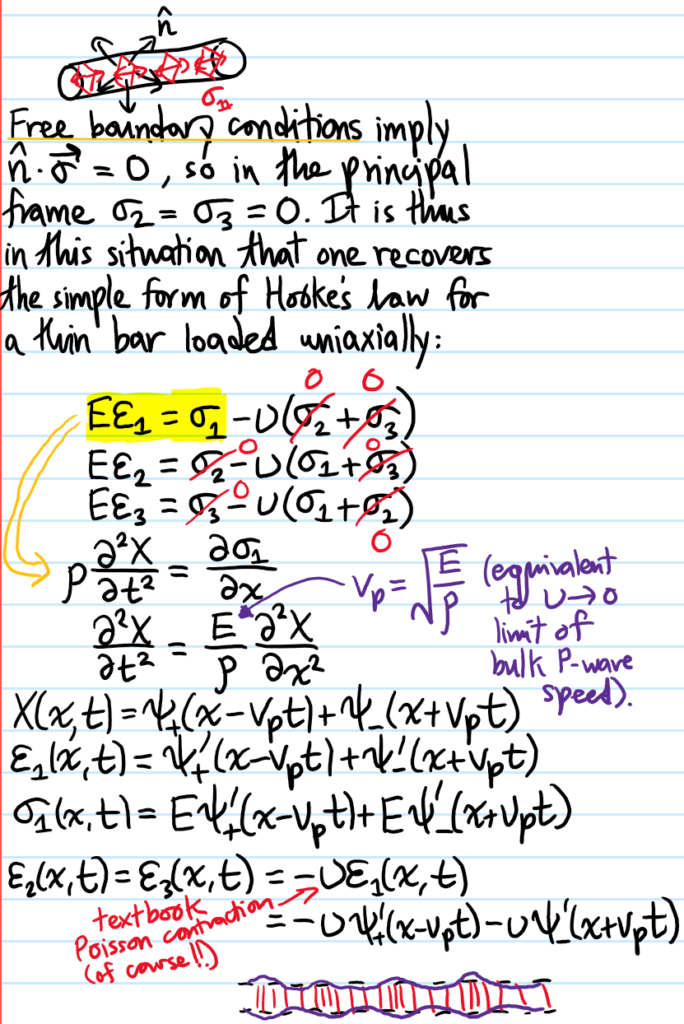 n̂
σ₁₁
Free boundary conditions imply
n̂·σ⃗ = 0, so in the principal
frame σ₂ = σ₃ = 0. It is thus
in this situation that one recovers
the simple form of Hooke's law for
a thin bar loaded uniaxially:
0 0
Eε₁ = σ₁ - υ(σ₂+σ₃)
0 0
Eε₂ = σ₂ - υ(σ₁+σ₃)
0
Eε₃ = σ₃ - υ(σ₁+σ₂)
0
ρ ∂²X/∂t² = ∂σ₁/∂x
∂²X/∂t² = E/ρ ∂²X/∂x²
Vp = √(E/ρ) (equivalent
to υ→0
limit of
bulk P-wave
speed).
X(x,t) = ψ₊(x-Vpt)+ψ₋(x+Vpt)
ε₁(x,t) = ψ₊'(x-Vpt)+ψ₋'(x+Vpt)
σ₁(x,t) = Eψ₊'(x-Vpt)+Eψ₋'(x+Vpt)
ε₂(x,t) = ε₃(x,t) = -υε₁(x,t)
= -υψ₊'(x-Vpt)-υψ₋'(x+Vpt)
textbook
Poisson contraction
(of course!!)